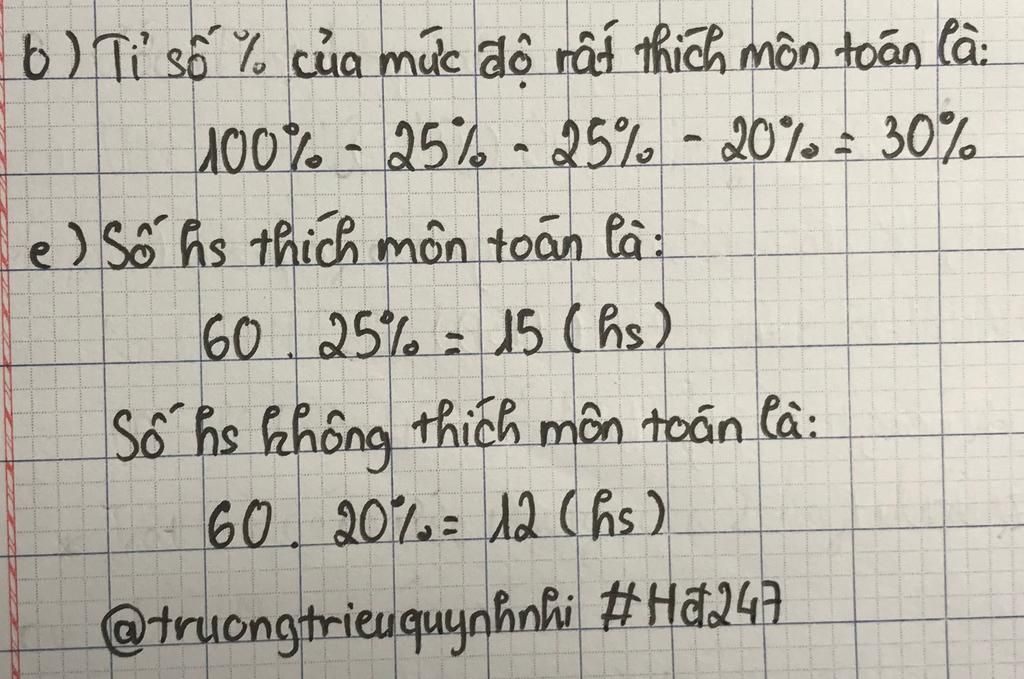 b) Tỉ số % của mức độ rất thích môn toán là:
100% - 25% - 25% - 20% = 30%
e) Số hs thích môn toán là:
60 . 25% = 15 (hs)
Số hs không thích môn toán là:
60 . 20% = 12 (hs)
@truongtrieuquynhnhi #Hđ247